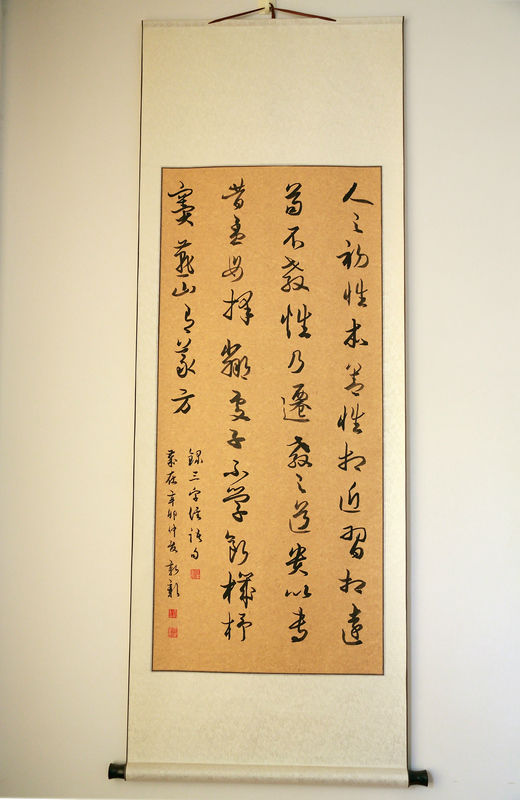 人之初性本善性相近習相遠
苟不教性乃遷教之道貴以專
昔孟母擇鄰處子不學斷機杼
竇燕山有義方
錄三字經語句
歲在辛卯仲